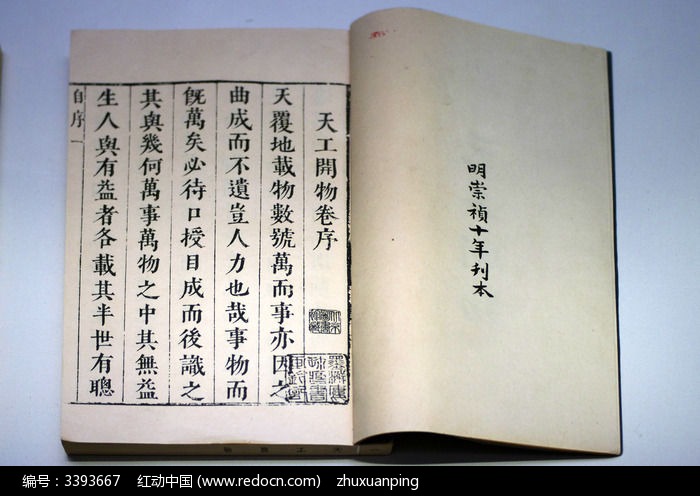 明崇禎十年刊本
天工開物卷序
天覆地載物數號萬而事亦因之
曲成而不遺豈人力也哉事物而
既萬矣必待口授目成而後識之
其與幾何萬事萬物之中其無益
生人與有益者各載其半世有聰
自序 一
编号：3393667 红动中国 (www.redocn.com) zhuxuanping